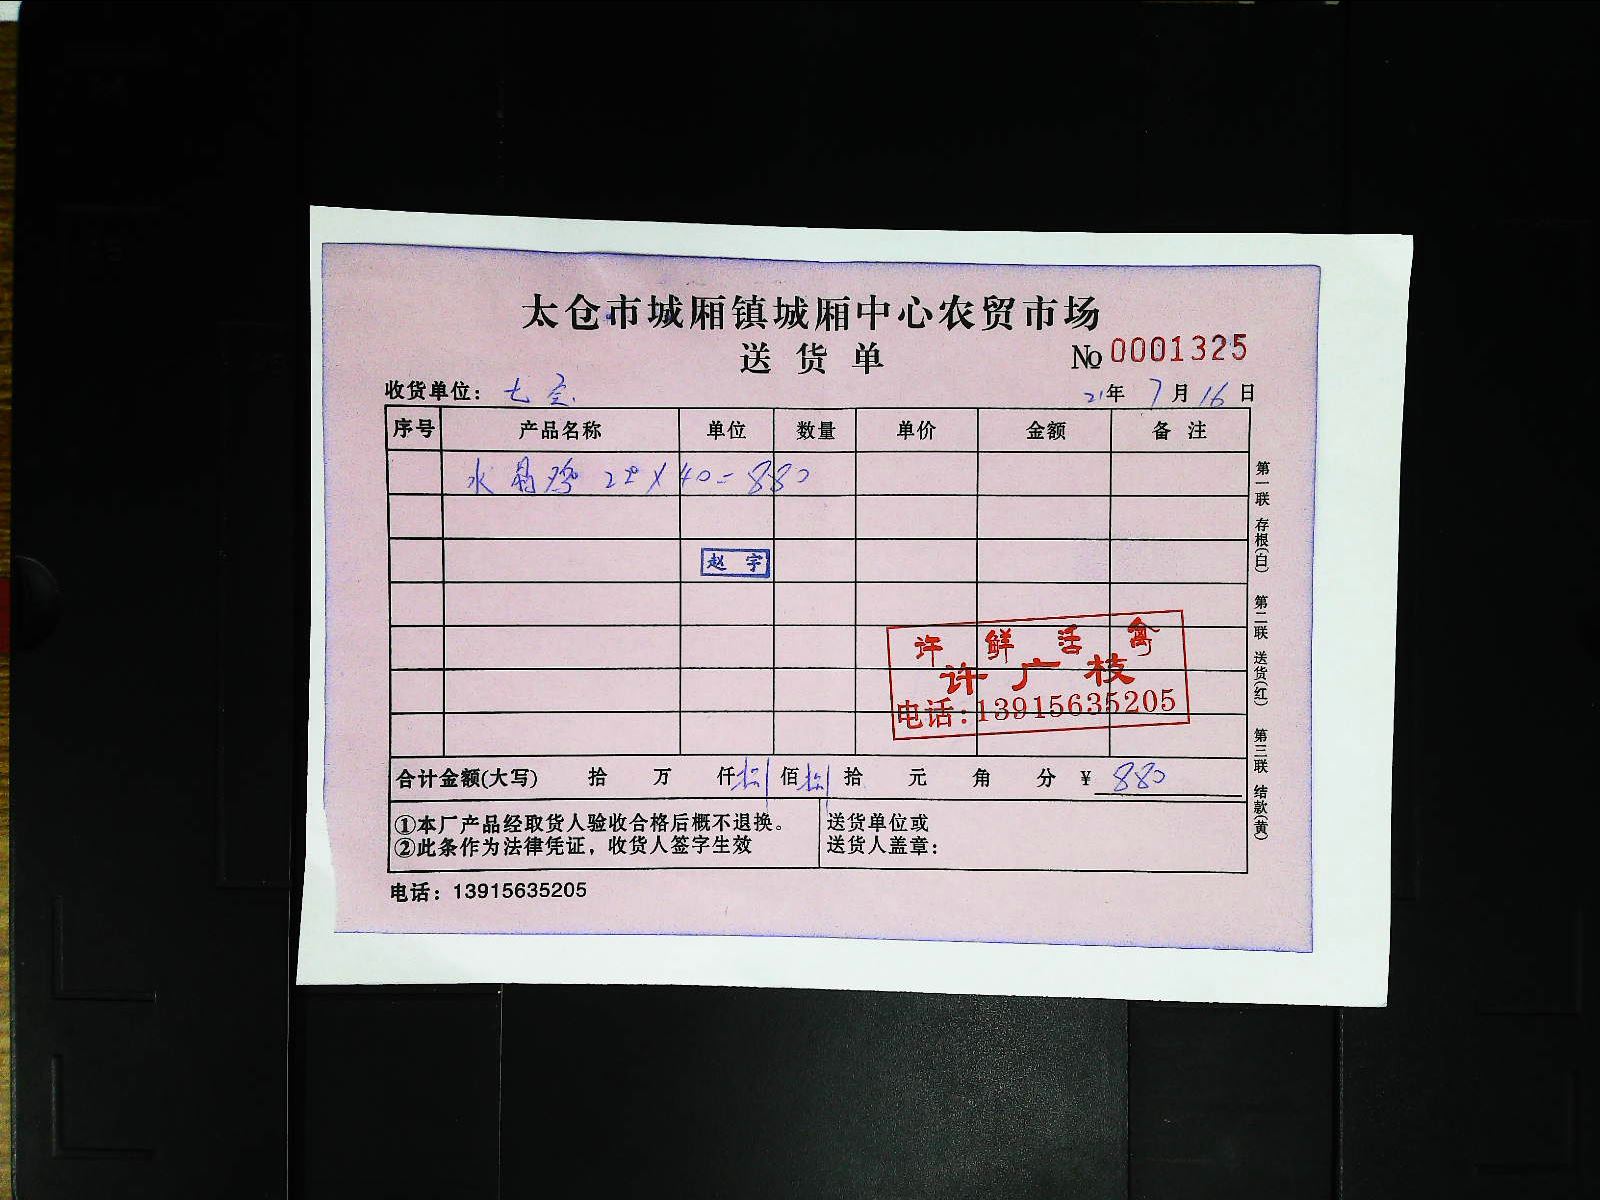 太仓市城厢镇城厢中心农贸市场
送货单
No 0001325
收货单位：七
21年 7月 16日
序号 产品名称 单位 数量 单价 金额 备注
水晶鸡 22×40=880
赵宇
许鲜活禽
许广枝
电话:13915635205
合计金额(大写) 拾 万 仟 捌 佰 捌 拾 元 角 分 ¥ 880
①本厂产品经取货人验收合格后概不退换。
②此条作为法律凭证，收货人签字生效
送货单位或
送货人盖章：
电话：13915635205
第一联 存根(白) 第二联 送货(红) 第三联 结款(黄)